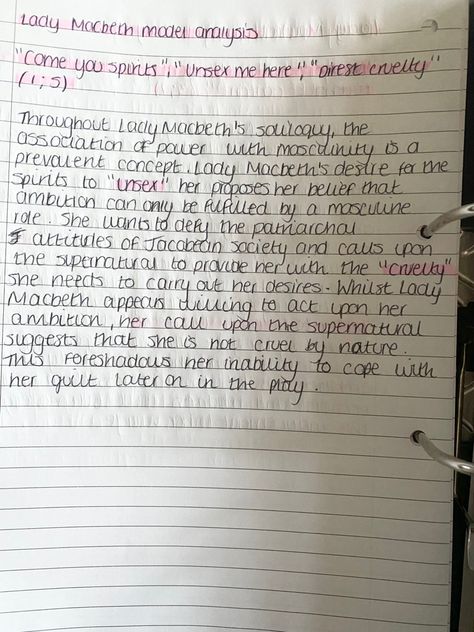 Lady Macbeth model analysis
"Come you spirits", "unsex me here", "Direst cruelty"
(1;5)
Throughout Lady Macbeth's soliloquy, the
association of power with masculinity is a
prevalent concept. Lady Macbeth's desire for the
spirits to "unsex" her proposes her belief that
ambition can only be fulfilled by a masculine
role. She wants to defy the patriarchal
attitudes of Jacobean society and calls upon
the supernatural to provide her with the "cruelty"
she needs to carry out her desires. Whilst Lady
Macbeth appears willing to act upon her
ambition, her call upon the supernatural
suggests that she is not cruel by nature.
This foreshadows her inability to cope with
her guilt later on in the play.